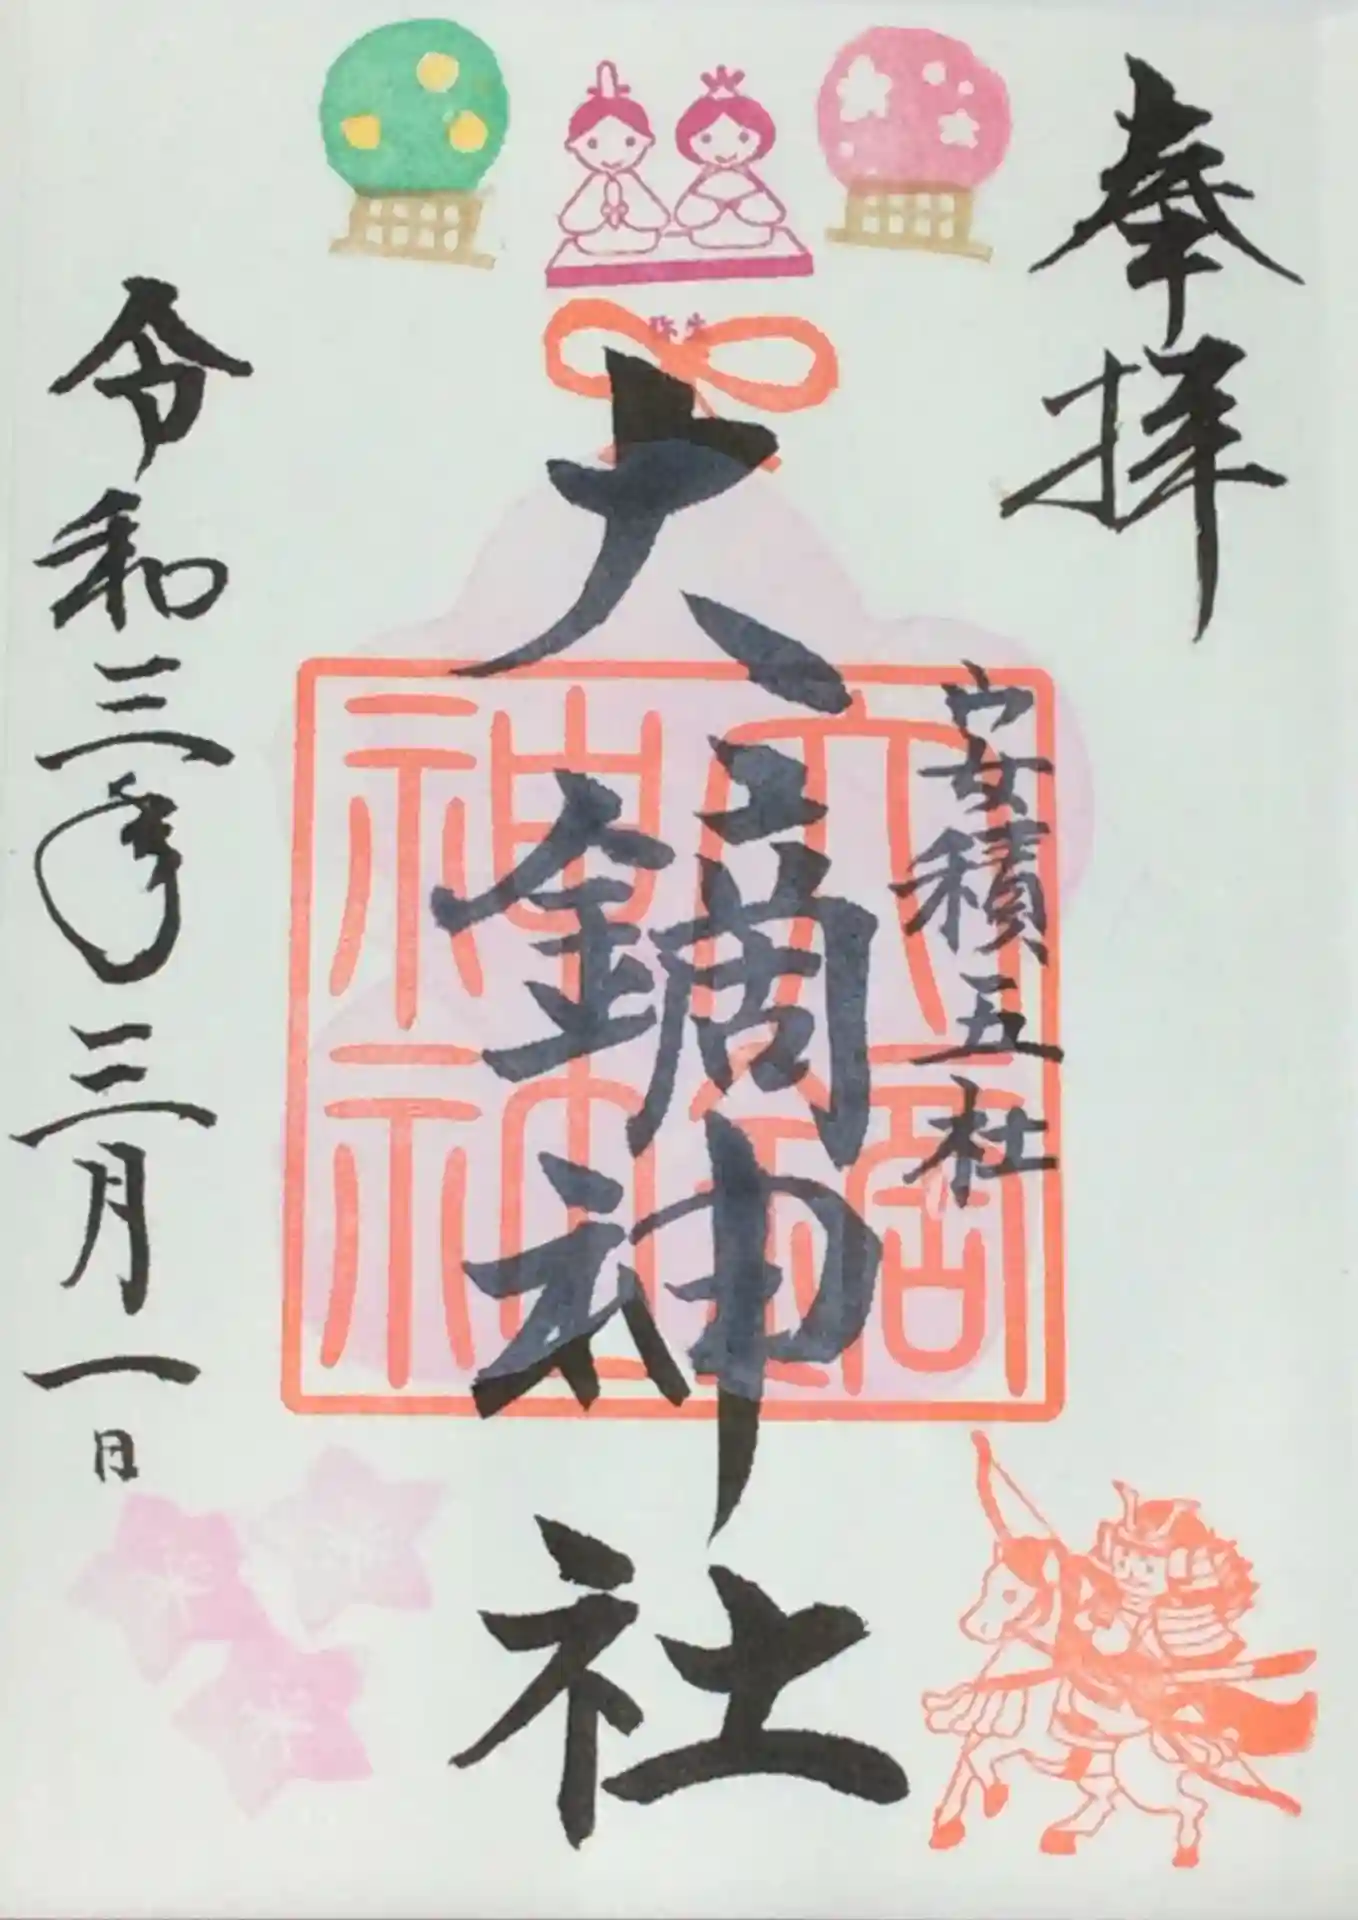 奉拝
安積五社
弥生
大鏑神社
大鏑
神社
令和三年三月一日